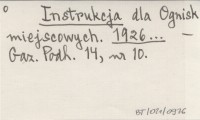 Instrukcja dla Ognisk
miejscowych. 1926... —
Gaz. Podh. 14, nr 10.
BJ/010/0976